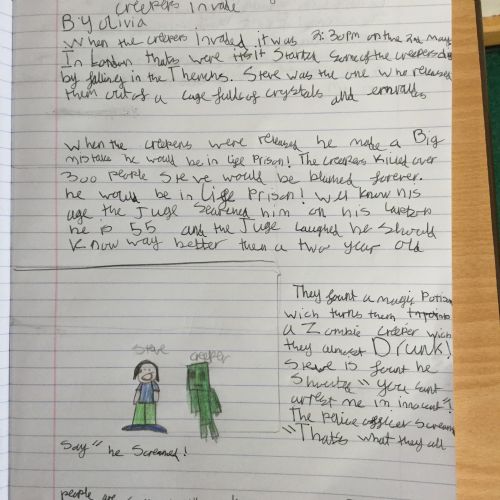 creepers invade
By olivia
When the creepers Invaded it was 3:30pm on the 2nd may
In London thats were it Started Some of the creepers die
by falling in the Thenchs. Steve was the one who released
them out of a cage full of crystals and emralds
When the creepers were released he made a Big
mistake he would be in life Prison! The creepers killed over
300 people Steve would be blumed forever.
he would be in Life Prison! Will know his
age the Juge Searched him on his
he is 55 and the Juge Laughed he Should
Know way better then a two year old
They fount a magic Potion
wich turns them into
a Zombie creeper wich
they almost Drunk!
Steve is fount he
Shouts" you cant
arrest me im inocent"!
The Police officer Scream
"That's what they all
Steve
creeper
Say" he Screamed!
people are